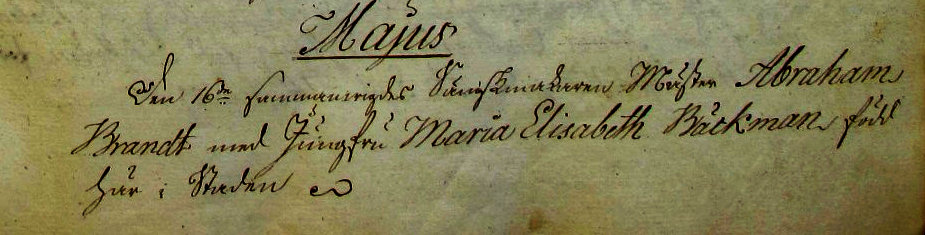 Majus
Den 16de sammanvigdes Sämskmakaren Mäster Abraham
Brandt med Jungfru Maria Elisabeth Bäckman född
här i Staden